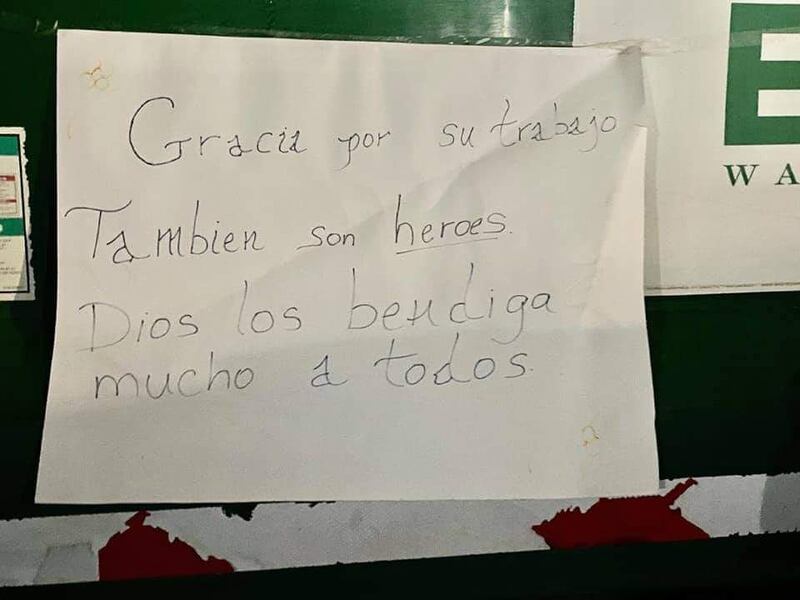 Gracia por su trabajo
Tambien son heroes.
Dios los bendiga
mucho a todos.
E
WA